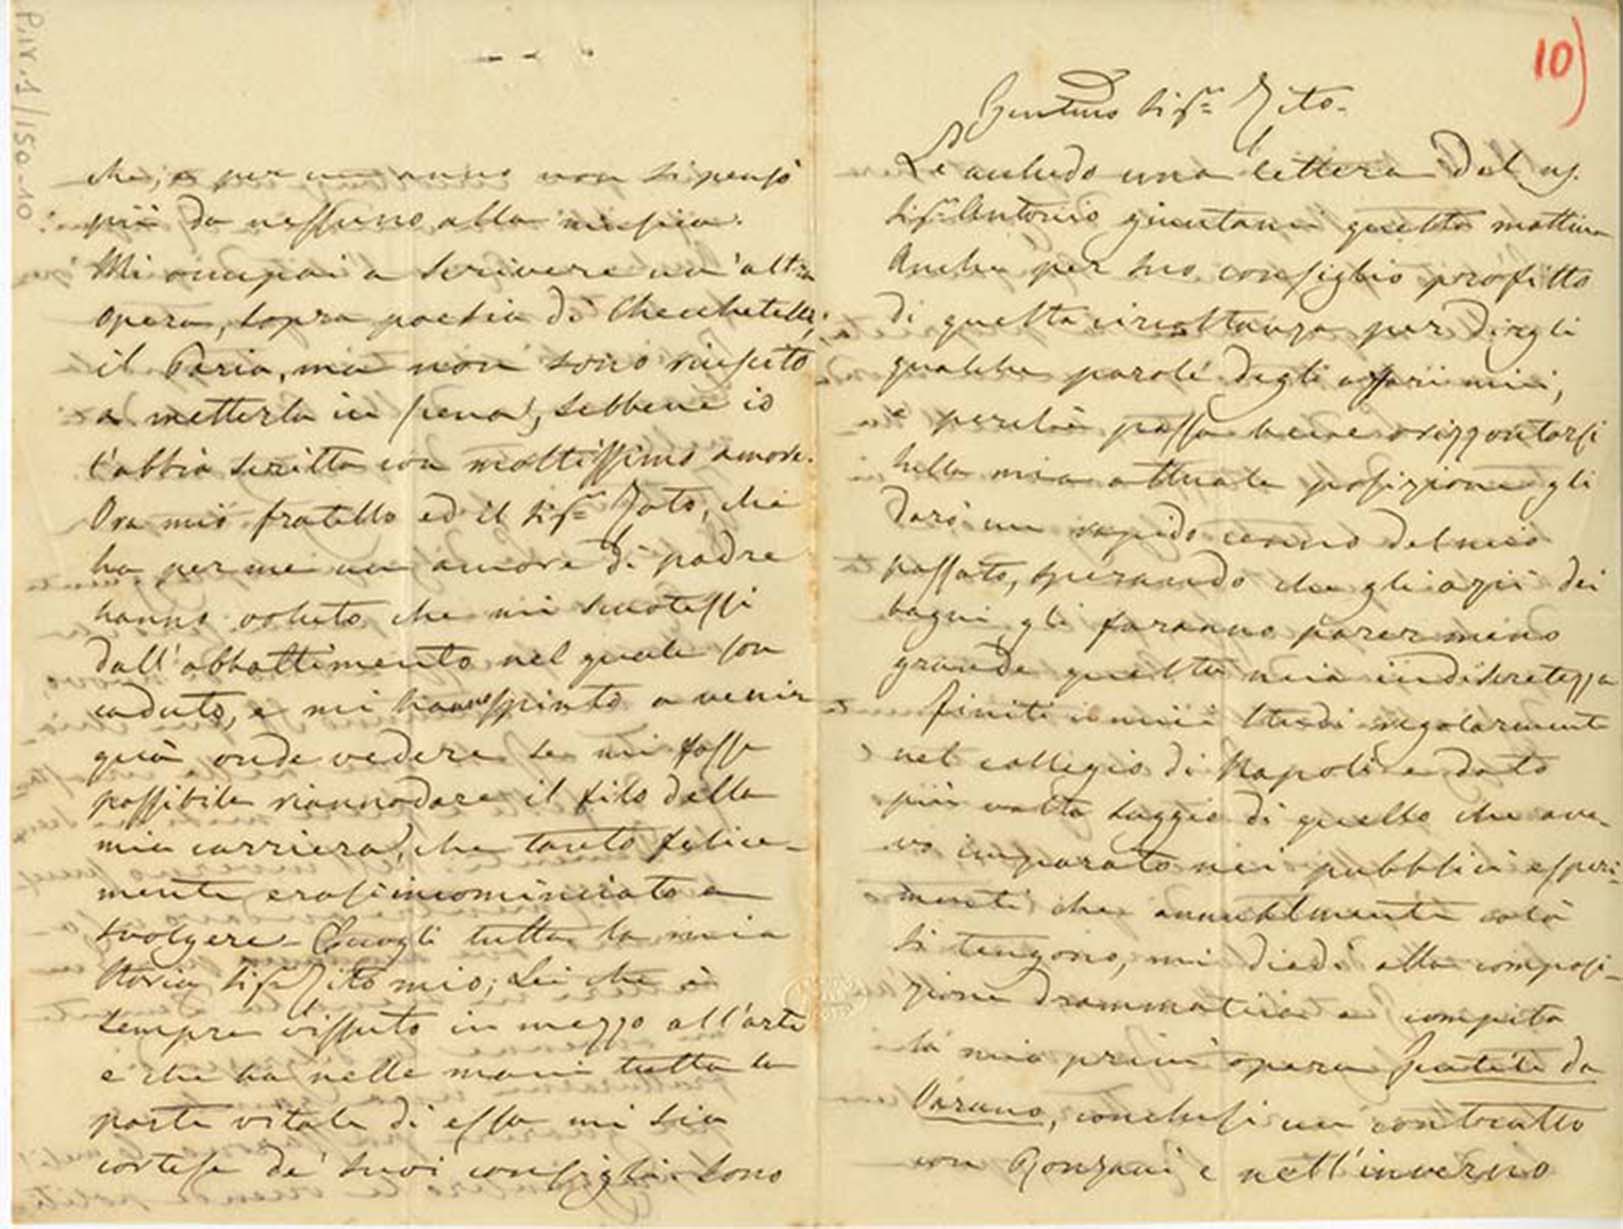 10)
Gentilmo Sigr Tito.
Le accludo una lettera del
Sigr Antonio giuntami questa mattina
Anche per suo consiglio profitto
di questa circostanza per dirgli
qualche parole degli affari miei,
e perché possa bene orizzontarsi
sulla mia attuale posizione gli
darò un rapido cenno del mio
passato, sperando che gli ozii dei
bagni gli faranno parer meno
grande questa mia indiscretezza
Finiti i miei studi regolarmente
nel collegio di Napoli e dato
più volte saggio di quello che ave-
vo imparato nei pubblici esperi-
menti che annualmente colà
si tengono, mi diedi alla composi-
zione drammatica e compita
la mia prim' opera da
Varano, conchiusi un contratto
con Ronzani e nell'inverno
che, e per un anno non si pensò
più da nessuno alla musica.
Mi occupai a scrivere un'altra
opera, sopra poesia di Checchetelli,
il Paria, ma non sono riuscito
a metterla in scena, sebbene io
l'abbia scritta con moltissimo amore.
Ora mio fratello ed il Sigr che
ha per me un amore di padre
hanno voluto che mi scuotessi
dall'abbattimento nel quale son
caduto, e mi hanno spinto a venir
quà onde vedere se mi fosse
possibile riannodare il filo della
mia carriera, che tanto felice-
mente erasi incominciato a
svolgere. Eccogli tutta la mia
storia Sigr Tito mio; Lei che è
sempre vissuto in mezzo all'arte
e che ha nelle mani tutta la
parte vitale di essa mi sia
cortese de' suoi consigli. Sono
P.IV.1/150-10